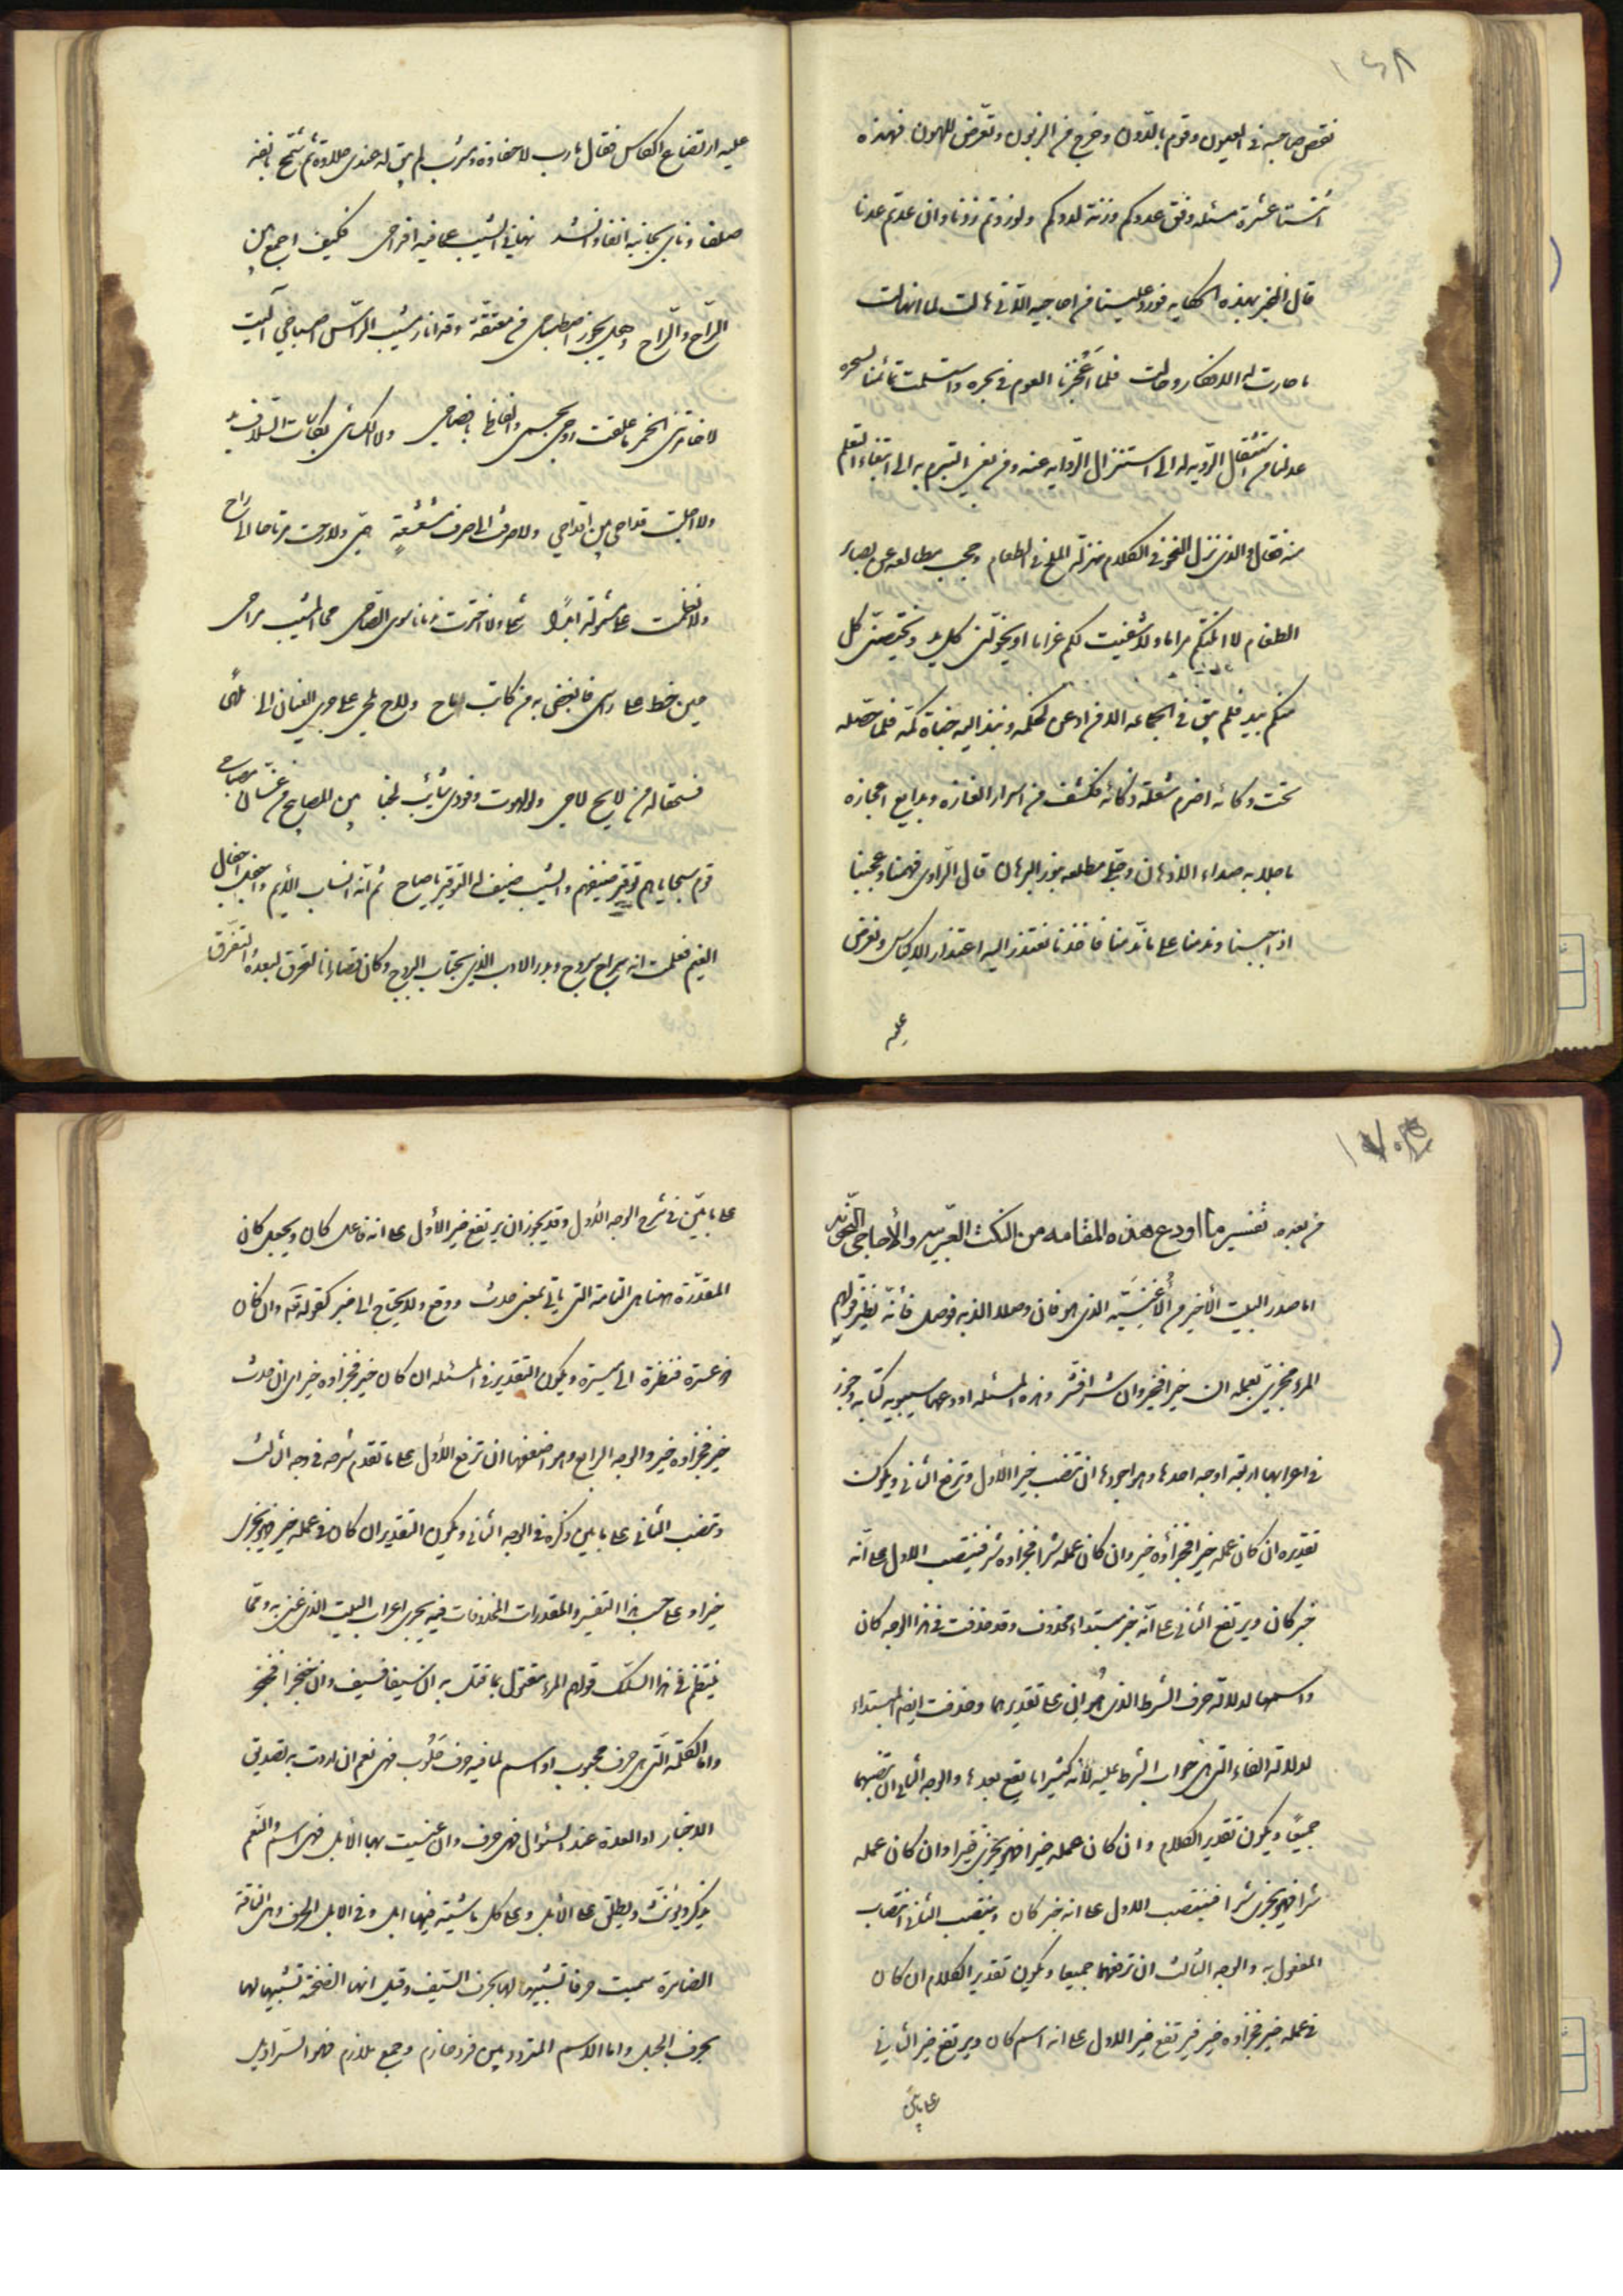 ١٦٨
نقص صاحبه في العيون وقوم بالدون وخرج من الزبون وتعرض للهون فهذه
اثنتا عشرة مسئلة وفق عددكم وزنة لددكم ولو زدتم زدنا وان عدتم عدنا
قال المخبر بهذه الحكاية فورد علينا من احاجيه اللاتي هالت لما انهالت
ما حارت له الافكار وحالت فلما اعجزنا العوم في بحره واستسلمت تمائمنا لسحره
عدلنا من استثقال الروية له الى استنزال الرواية عنه ومن بغي التبرم به الى ابتغاء التعلم
منه فقال والذي نزل النحو في الكلام منزلة الملح في الطعام وحجب مطالعه عن بصائر
الطغام لا انلتكم مراما ولا شفيت لكم غراما او تخولني كل يد ويختصني كل
منكم بيد فلم يبق في الجماعه الا من اذعن لحكمه ونبذ اليه خباة كمه فلما حصله
تحت وكائه اضرم شعلة ذكائه فكشف من اسرار الغازه وبدايع اعجازه
ما جلا به صداء الاذهان وجلى مطلعه بنور البرهان قال الراوي فهمنا وعجبنا
اذ اجبنا وندمنا على ما ندّ منا فاخذنا نعتذر اليه اعتذار الاكياس ونعرض
عليه
عليه ارتضاع الكاس فقال مارب لا حفاوة ومشرب لم يبق له عندي حلاوة ثم شمخ بانفه
صلفا وناي بجانبه انفا وانشد نهاني الشيب عما فيه افراحي فكيف اجمع بين
الراح والراح وهل يجوز اصطباحي من معتقة وقد انار مشيب الراس اصباحي آليت
لا خامرتني الخمر ما علقت روحي بجسمي والفاظي بافصاحي ولا اكتست بكاسات السلاف يد
ولا اجلت قداحي بين اقداحي ولا صرفت الى صرف مشعشعة همي ولا رحت مرتاحا الى راح
ولا نظمت على مشمولة ابدا شملي ولا اخترت ندمانا سوى الصاحي محا المشيب مراحي
حين خط على راسي فابغض به من كاتب ماح ولاح يلحي على جري العنان الى ملهى
فسحقا له من لايح لاحي ولو لهوت وفودي شايب لخبا بين المصابيح من غسان مصباحي
قوم سجاياهم توقير ضيفهم والشيب ضيف له التوقير يا صاح ثم انه انساب الايم واجفل اجفال
الغيم فعلمت انه سراج سروج وبدر الادب الذي يجتاب البروج وكان قصارانا التحرق لبعده والتفرق
١٧٠
من بعده تفسير ما اودع هذه المقامه من النكت العربيه والأحاجي النحويه
اما صدر البيت الأخير من الأغنيّة الذي هو فان وصلا الذ به فوصل فانه نظير قولهم
المرء مجزي بعمله ان خيرا فخير وان شرا فشر وهذه المسئله اودعها سيبويه كتابه وجوز
في اعرابها اربعة اوجه احدها وهو اجودها ان تنصب خيرا الاول وترفع الثاني ويكون
تقديره ان كان عمله خيرا فجزاؤه خير وان كان عمله شرا فجزاوه شر فتنصب الاول على انّه
خبر كان ويرتفع الثاني على انّه خبر مبتداء محذوف وقد حذفت في هذا الوجه كان
واسمها لدلالة حرف الشرط الذي هو ان على تقديرهما وحذفت ايضا المبتداء
لدلالة الفاء التي هي جواب الشرط عليه لانه كثيرا ما يقع بعدها والوجه الثاني ان تنصبهما
جميعا ويكون تقدير الكلام وان كان عمله خيرا فهو يجزى خيرا وان كان عمله
شرا فهو يجزى شرا فينتصب الاول على انه خبر كان وينتصب الثاني انتصاب
المفعول به والوجه الثالث ان ترفعهما جميعا ويكون تقدير الكلام ان كان
في عمله خير فجزاوه خير فيرتفع خير الاول على انه اسم كان ويرتفع خير الثاني
على ما بين
على ما بيّن في شرح الوجه الاول وقد يجوز ان يرتفع خير الاول على انه فاعل كان ويجعل كان
المقدّرة هنا هي التامة التي ياتي بمعنى حدث ووقع ولا يحتاج الى خبر كقوله تعالى وان كان
ذو عسرة فنظرة الى ميسرة ويكون التقدير في المسئله ان كان خير فجزاوه خير اي ان حدث
خير فجزاوه خير والوجه الرابع وهو اضعفها ان ترفع الاول على ما تقدم شرحه في وجه الثالث
وتنصب الثاني على ما بين ذكره في الوجه الثاني ويكون التقدير ان كان في عمله خير فهو يجزى
خيرا وعلى حسب هذا التفسير والمقدرات المحذوفات فيه يجري اعراب البيت الذي غنى به ومما
ينتظم في هذا السلك قولهم المرء مقتول بما قتل به ان سيفا فسيف وان خنجرا فخنجر
واما الكلمة التي هي حرف محبوب او اسم لما فيه حرف حلوب فهي نعم ان اردت به تصديق
الاخبار او العدة عند السئوال فهي حرف وان عنيت بها الأبل فهي اسم والنعم
يذكر ويؤنث ويطلق على الأبل وعلى كل ماشية فيها ابل وفي الابل الحرف وهي الناقة
الضامرة سميت حرفا تشبيها لها بحرف السيف وقيل انها الضخمة تشبيها لها
بحرف الجبل واما الاسم المتردد بين فرد حازم وجمع ملازم فهو السراويل